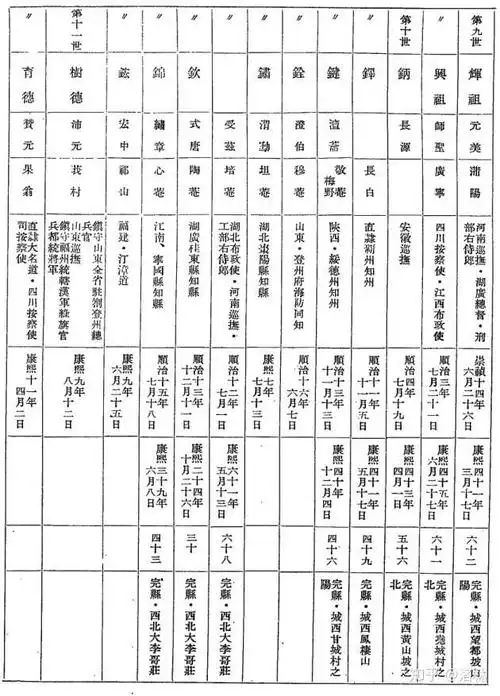 第九世 輝祖 元美 蒲陽 河南巡撫・湖廣總督・刑部右侍郎 崇禎十四年六月二六日 康熙四十一年三月十七日 六十二 完縣・城西望都坡山陽
〃 興祖 師聖 廣寧 四川按察使・江西布政使 順治三年七月二十一日 康熙四十五年六月二十七日 六十一 完縣・城西堯城村之北
第十世 鈵 長源 安徽巡撫 順治四年七月十九日 康熙四十三年四月一日 五十六 完縣・城西黃山坡之北
〃 鐸 長白 直隸霸州知州 順治十一年十一月五日 康熙四十一年五月十七日 四十九 完縣・城西鳳棲山
〃 鍵 澹菴 敬菴 梅野 陝西・綏德州知州 順治十三年十一月十三日 康熙四十一年十二月四日 四十六 完縣・城西甘城村之陽
〃 銓 澄伯 穆菴 山東・登州府海防同知 順治十六年六月七日
〃 鏽 坦菴 湖北棗陽縣知縣 康熙七年七月十三日
〃 受茲 培菴 湖北布政使・河南巡撫・工部右侍郎 順治十二年七月一日 康熙六十一年五月十三日 六十八 完縣・西北大李哥莊
〃 欽 式唐 陶菴 湖廣桂東縣知縣 順治十三年十二月十一日 康熙二十四年十月二十六日 三十 完縣・西北大李哥莊
〃 錦 繡章 心菴 江南、寧國縣知縣 順治十五年七月十八日 康熙三十九年六月八日 四十三 完縣・西北大李哥莊
〃 宏中 祁山 福建・汀漳道 康熙九年六月二十五日
第十一世 樹德 沛元 莪村 鎮守山東全省駐劄登州總兵官 山東巡撫 鎮守福州統轄漢軍綠旗官兵都統將軍 康熙九年八月十二日
〃 育德 贊元 果翁 直隸大名道・四川按察使司按察使 康熙十一年四月二日